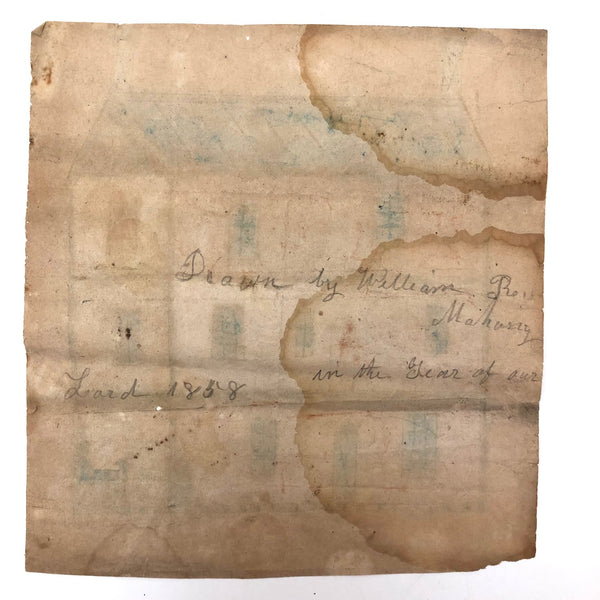 Drawn by William R.
Mahurig
in the Year of our
Lord 1858